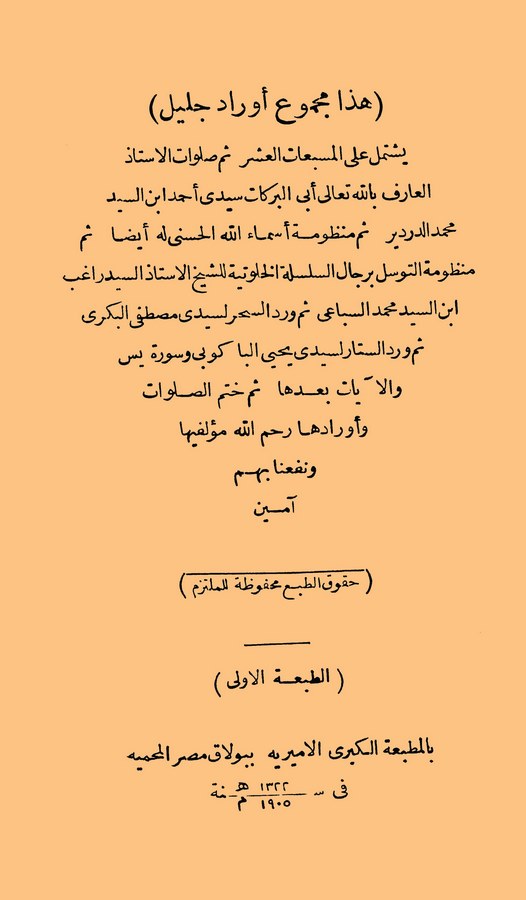 (هذا مجموع أوراد جليل)
يشتمل على المسبعات العشر ثم صلوات الاستاذ
العارف بالله تعالى أبى البركات سيدى أحمد ابن السيد
محمد الدردير ثم منظومة أسماء الله الحسنى له أيضا ثم
منظومة التوسل برجال السلسلة الخلوتية للشيخ الاستاذ السيد راغب
ابن السيد محمد السباعى ثم ورد السحر لسيدى مصطفى البكرى
ثم ورد الستار لسيدى يحيى الباكوبى وسورة يس
والآيات بعدها ثم ختم الصلوات
وأورادها رحم الله مؤلفيها
ونفعنا بهم
آمين
(حقوق الطبع محفوظة للملتزم)
(الطبعة الاولى)
بالمطبعة الكبرى الاميريه ببولاق مصر المحميه
فى سنة ١٣٢٢ هـ
١٩٠٥ م